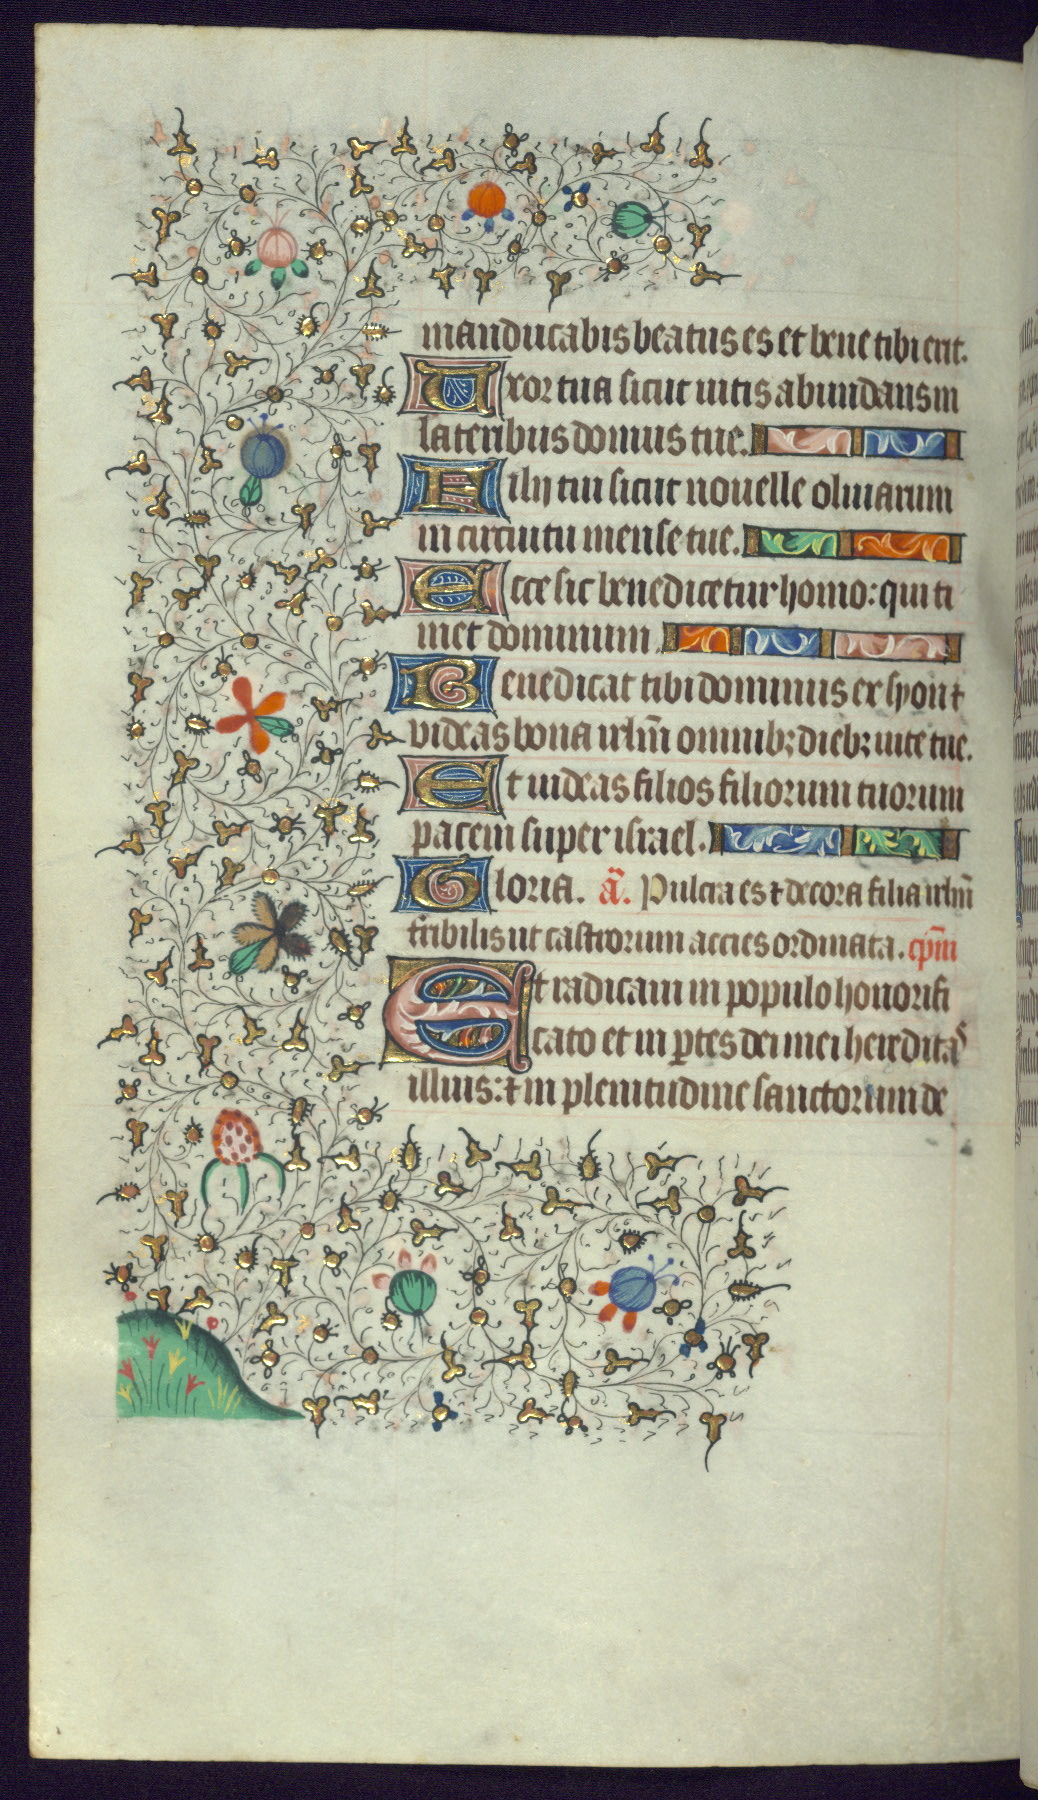 manducabis beatus es et bene tibi erit.
Uxor tua sicut uitis abundans in
lateribus domus tue.
Filij tui sicut nouelle oliuarum
in circuitu mense tue.
Ecce sic benedicetur homo: qui ti
met dominum.
Benedicat tibi dominus ex syon ⁊
videas bona irlm̄ omnibꝫ diebꝫ uite tue.
Et uideas filios filiorum tuorum
pacem super israel.
Gloria. a͞. Pulcra es ⁊ decora filia irlm̄
t̄ribilis ut castrorum accies ordinata. cp̄m
Et radicaui in populo honorifi
cato et in ꝑtes dei mei hereditaˢ
illius: ⁊ in plenitudine sanctorum de